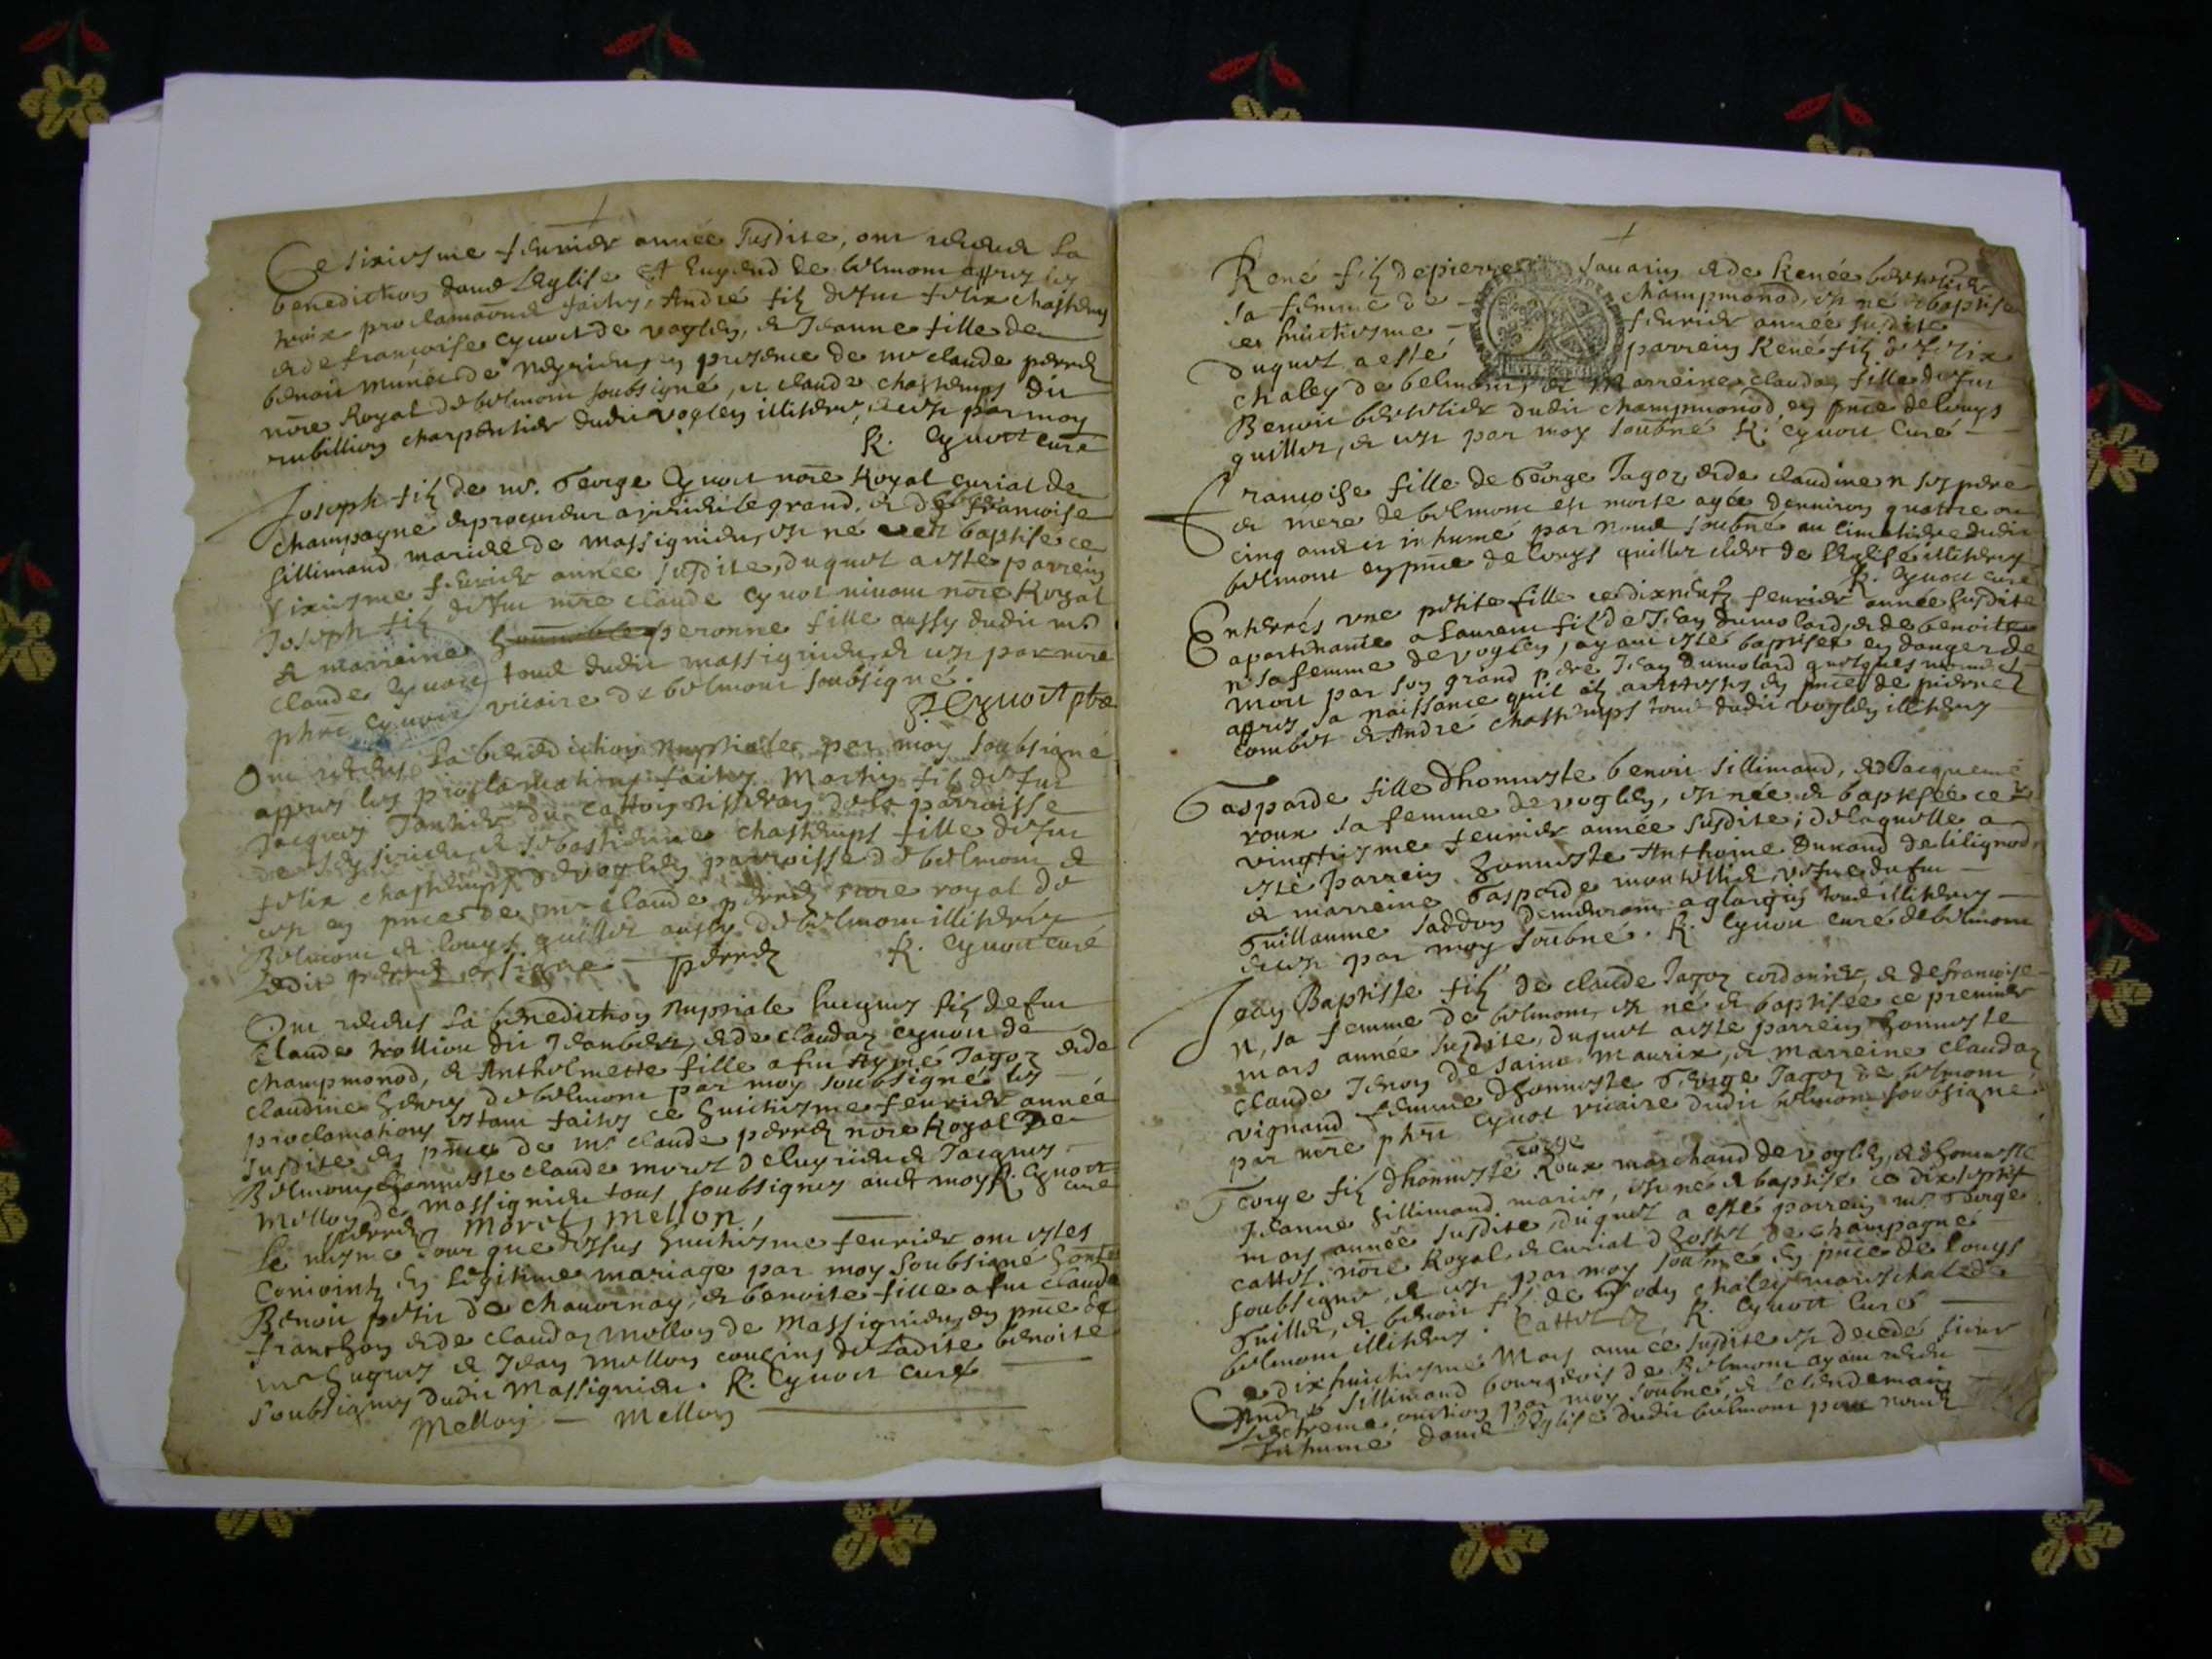 Ce sixiesme feurier année susdite, ont receu la
benediction dans leglise St Eugend de belmont appres les
trois proclamaons faites, André filz de feu felix chastemps
et de françoise cynost de voglen, et Jeanne fille de
benoit munet de neyrieu, en presence de me claude perret
nore Royal de belmont soubsigné, et claude chastemps dit
rubillion charpentier dudit voglen illiteres, et ce par moy
R. Cynost curé
Joseph filz de me. George Cynost nore Royal curial de
champagne et procureur a virieu le grand, et de françoise
sillimand mariée de massignieu, est né et baptisé ce
sixiesme feurier année susdite, duquel a esté parrein
Joseph filz de feu me claude cynost nore Royal
& marreine peronne fille aussy dudit me
claude cynost tous dudit massignieu, et ce par mre
cynost vicaire de belmont soubsigné.
P. Cynost pbre
Ont receu la benediction nuptiale par moy soubsigné
appres les proclamations faites Martin filz de feu
Jacques Janthier du catton tisseran de la parroisse
de et sebastienne chastemps fille de feu
felix chastemps de voglen parroisse de belmont &
ce en pnce de me claude perret nore royal de
Belmont & louys quillet aussy de belmont illiterés
Ledit perret a signé - perret R. Cynost curé
Ont receu la benediction nuptiale hugues filz de feu
Claude trollion dit Jeanbert, et de claudaz cynost de
champmonod, et Anthelmette fille a feu Ayme Jagoz et de
claudine henry de belmont par moy soubsigné les
proclamations estant faites ce huictiesme feurier année
susdite en pnce de me claude perret nore Royal de
Belmont, honneste claude moret de luyrieu & Jacques
mellon de massignieu tous soubsignes auec moy R. Cynost curé
perret, moret, mellon,
Le mesme Jour que dessus huictiesme feurier ont estes
Conioints en legitime mariage par moy soubsigné honte
Benoit petit de chauornay, et benoite fille a feu claude
franchon et de claudaz mellon de Massignieu, en pnce de
me hugues & Jean mellon cousins de ladite benoite
soubsignes dudit Massignieu. R. Cynost Curé
Mellon — Mellon
René filz de pierre sauarin et de Renée berthier
sa femme de champmonod, est né & baptisé
ce huictiesme feurier année susdite
duquel a esté parrein René filz de felix
chaley de belmont, et Marreine claudaz fille de feu
Benoit berthier dudit champmonod, en pnce de louys
quillet, et ce par moy soubné R. Cynost Curé
Francoise fille de George Jagoz et de claudine n ses pere
et mere de belmont est morte agée denuiron quatre ou
cinq ans et inhumé par nous soubné au cimetiere dudit
belmont en pnce de louys quillet clerc de l'Eglise illiteres
R. Cynost curé
Enterrés vne petite fille ce dixneufz feurier année susdite
apartenante a laurent filz de Jean dumolard, et de benoite
n sa femme de voglen, ayant esté baptisee en danger de
mort par son grand pere Jean dumolard quelques momens
appres sa naissance quil ait attestes en pnce de pierre
combet & André chastemps tous dudit voglen illiteres
Gasparde fille dhonneste benoit sillimand, et Jacqueme
roux sa femme de voglen, est née & baptisée ce
vingtiesme feurier année susdite; de laquelle a
esté parrein honneste Anthoine Durand de lilignod,
& marreine Gasparde montillier vefue du feu
Guillaume saddon demeurant a glargin tous illiteres
et ce par moy soubné. R. Cynost curé de belmont
Jean Baptiste filz de claude Jagoz cordonnier, & de francoise
n, sa femme de belmont, est né & baptisée ce premier
mars année susdite, duquel a esté parrein honneste
claude Jenon de saint Maurix, & marreine claudaz
vignand femme dhonneste George Jagoz de belmont
par mre cynost vicaire dudit belmont soubsigné
George filz dhonneste George Roux marchand de voglen, et dhonneste
Jeanne sillimand maries, est né & baptisé ce dix septi
mars année susdite, duquel a esté parrein me George
cattet nore Royal & curial dhostel de champagne
soubsigné et ce par moy soubné en pnce de louys
Guillet, & benoit filz de chaley mareschal de
belmont illiteres. Cattet R. Cynost Curé
Ce dixhuictiesme Mars année susdite est decedé sieur
André sillimand bourgeois de Belmont ayant receu
lextreme onction par moy soubné, & le lendemain
Inhumé dans l'Eglise dudit belmont par nous